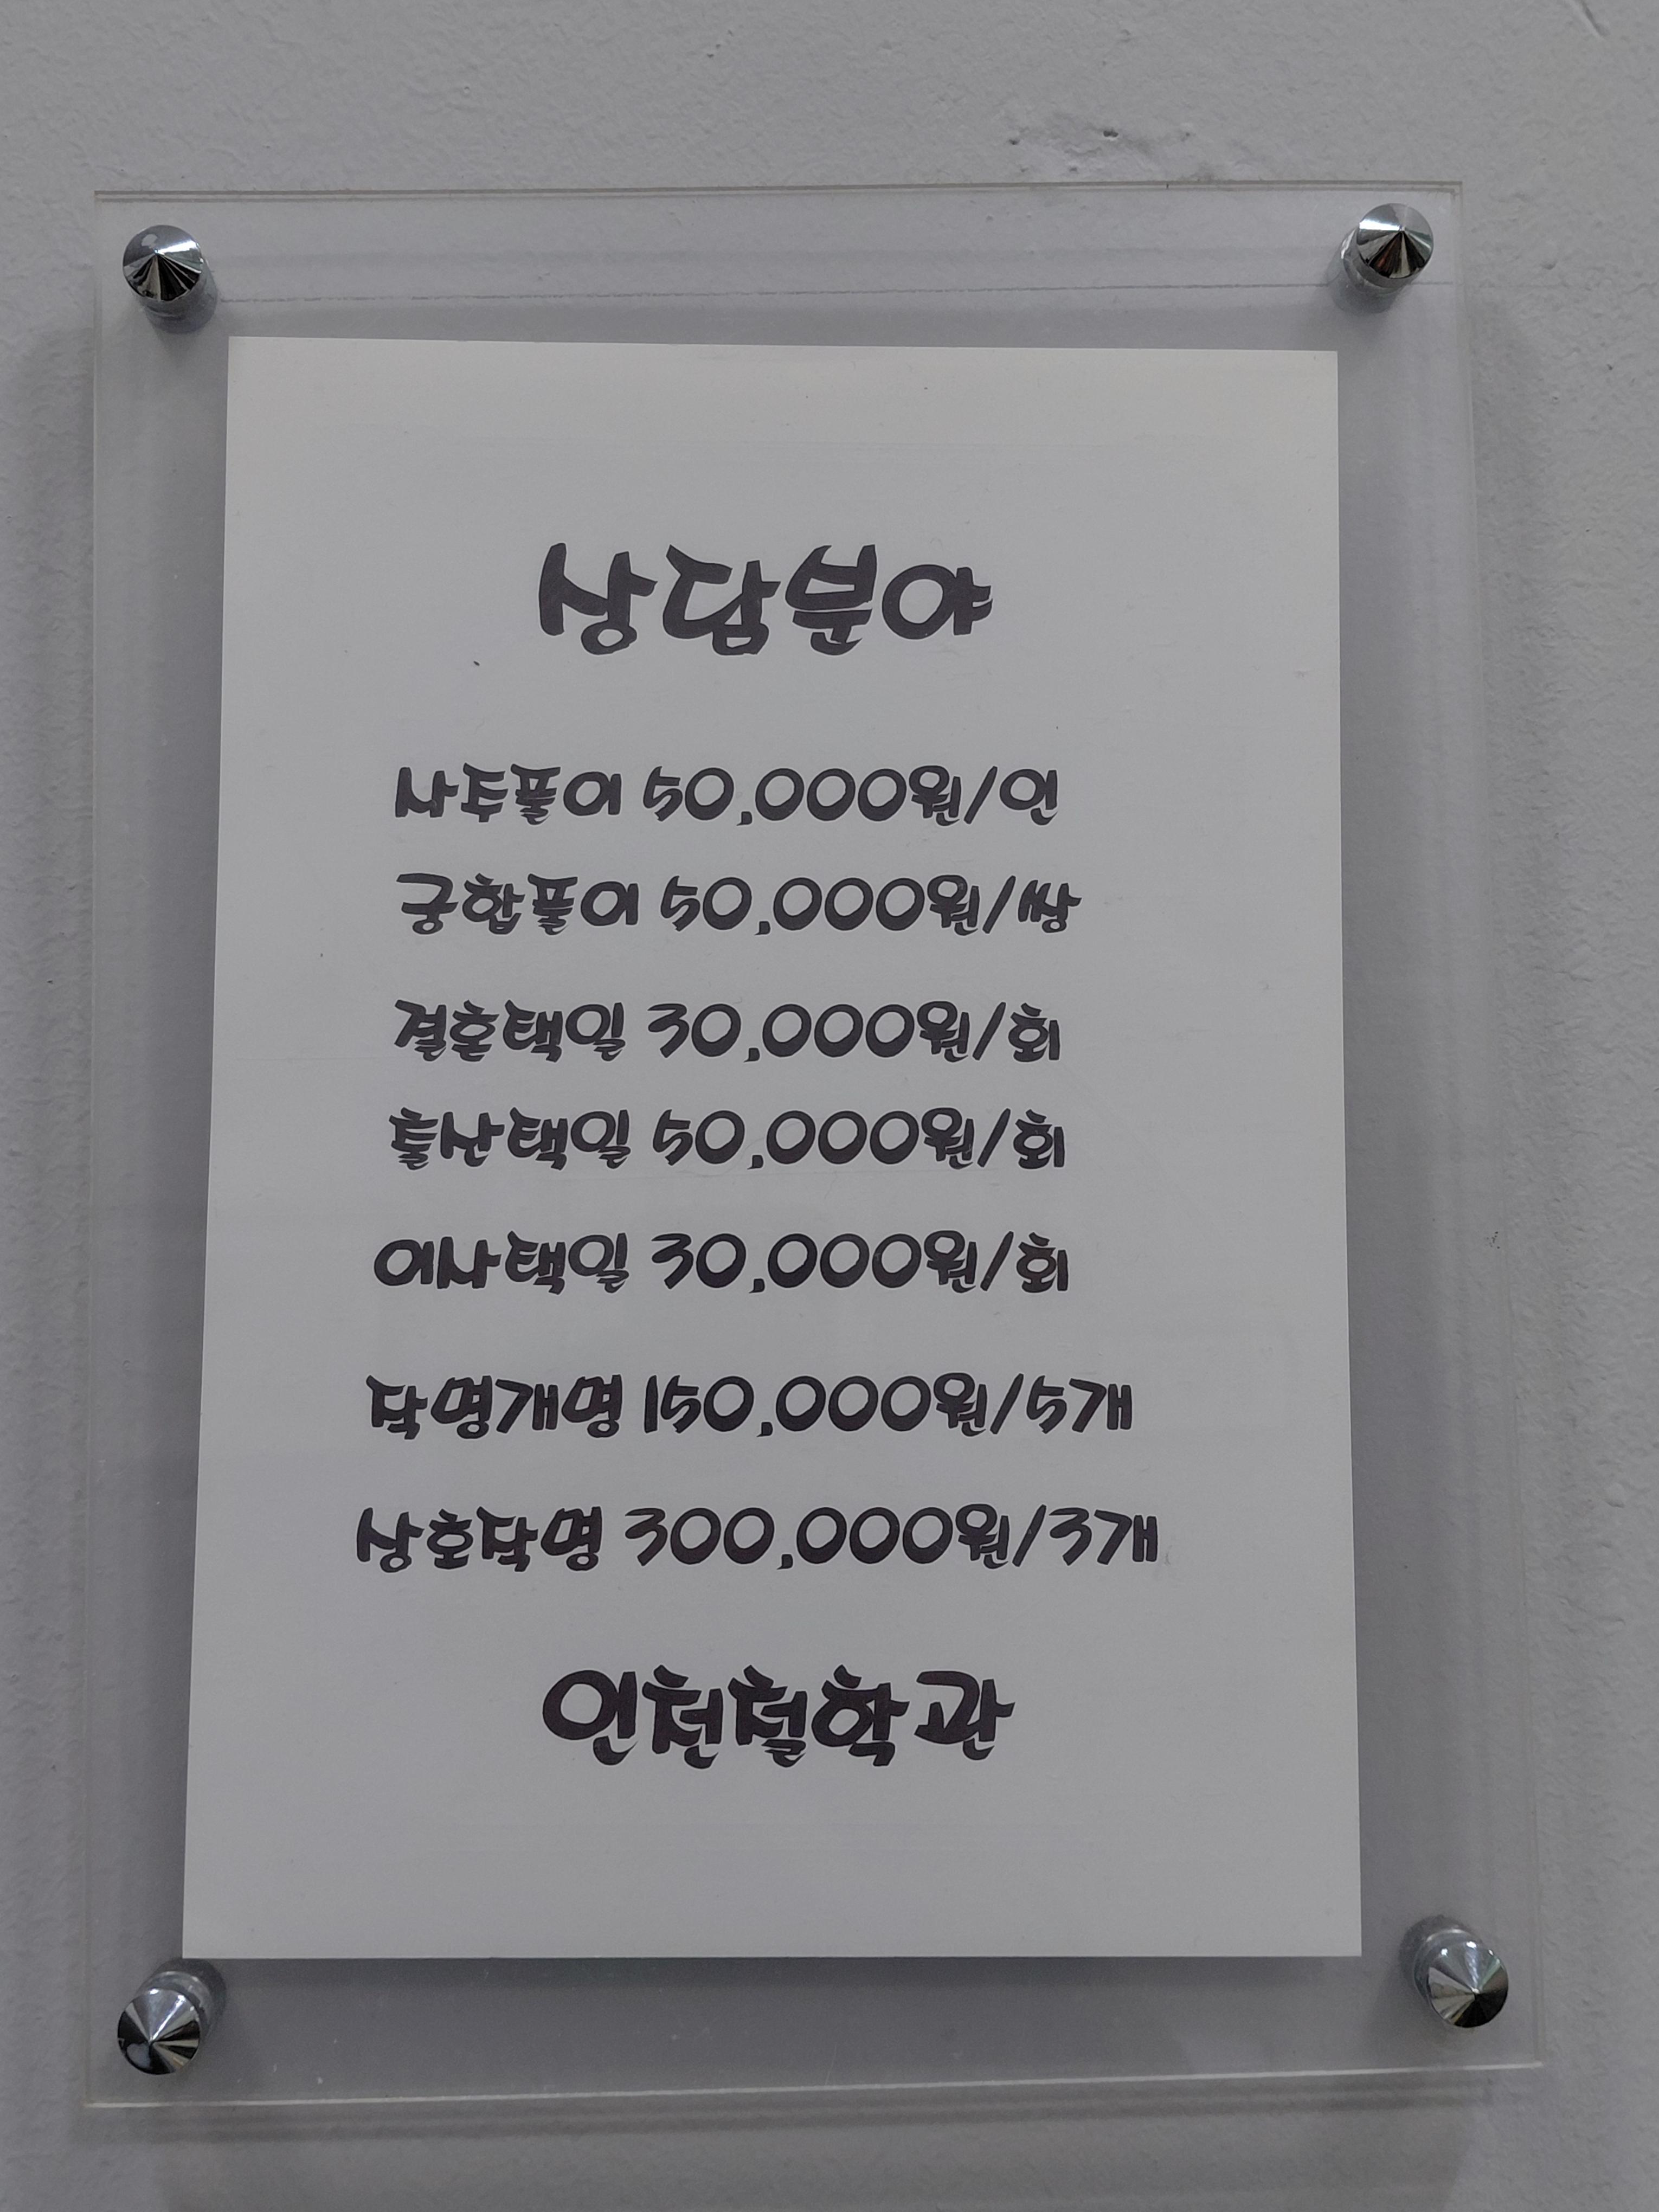 상담분야
사주풀이 50,000원/인
궁합풀이 50,000원/쌍
결혼택일 30,000원/회
출산택일 50,000원/회
이사택일 30,000원/회
작명개명 150,000원/5개
상호작명 300,000원/3개
인천철학관